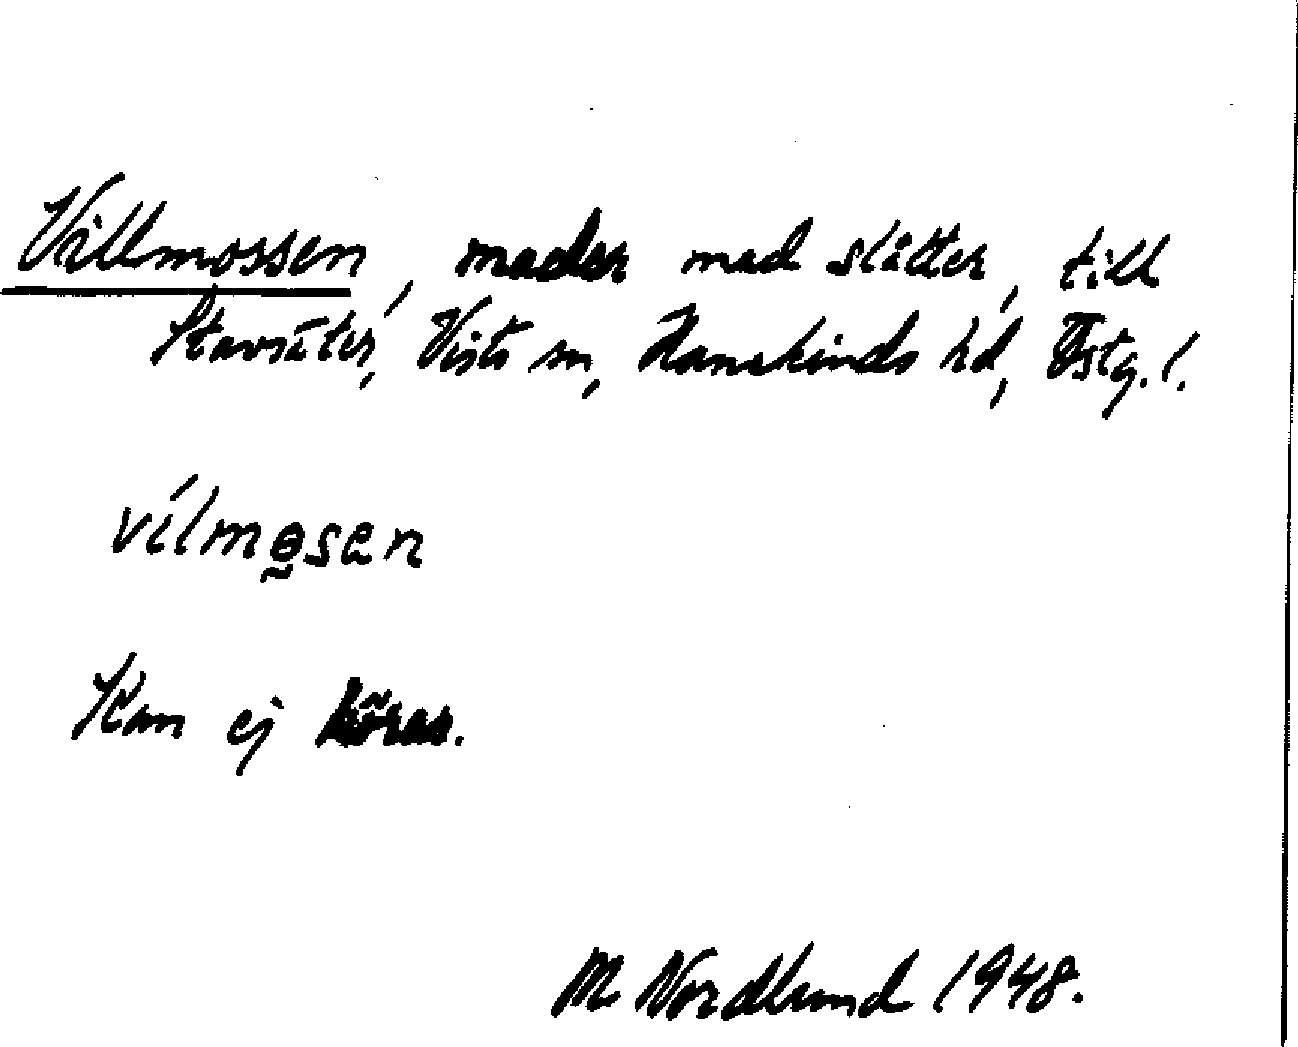 Villmossen, mader med slåtter, till
Stavsäter, Vists sn, Hanekinds hd, Östg. l.
vílmɵsen
Kan ej köras.
M. Nordlund 1948.